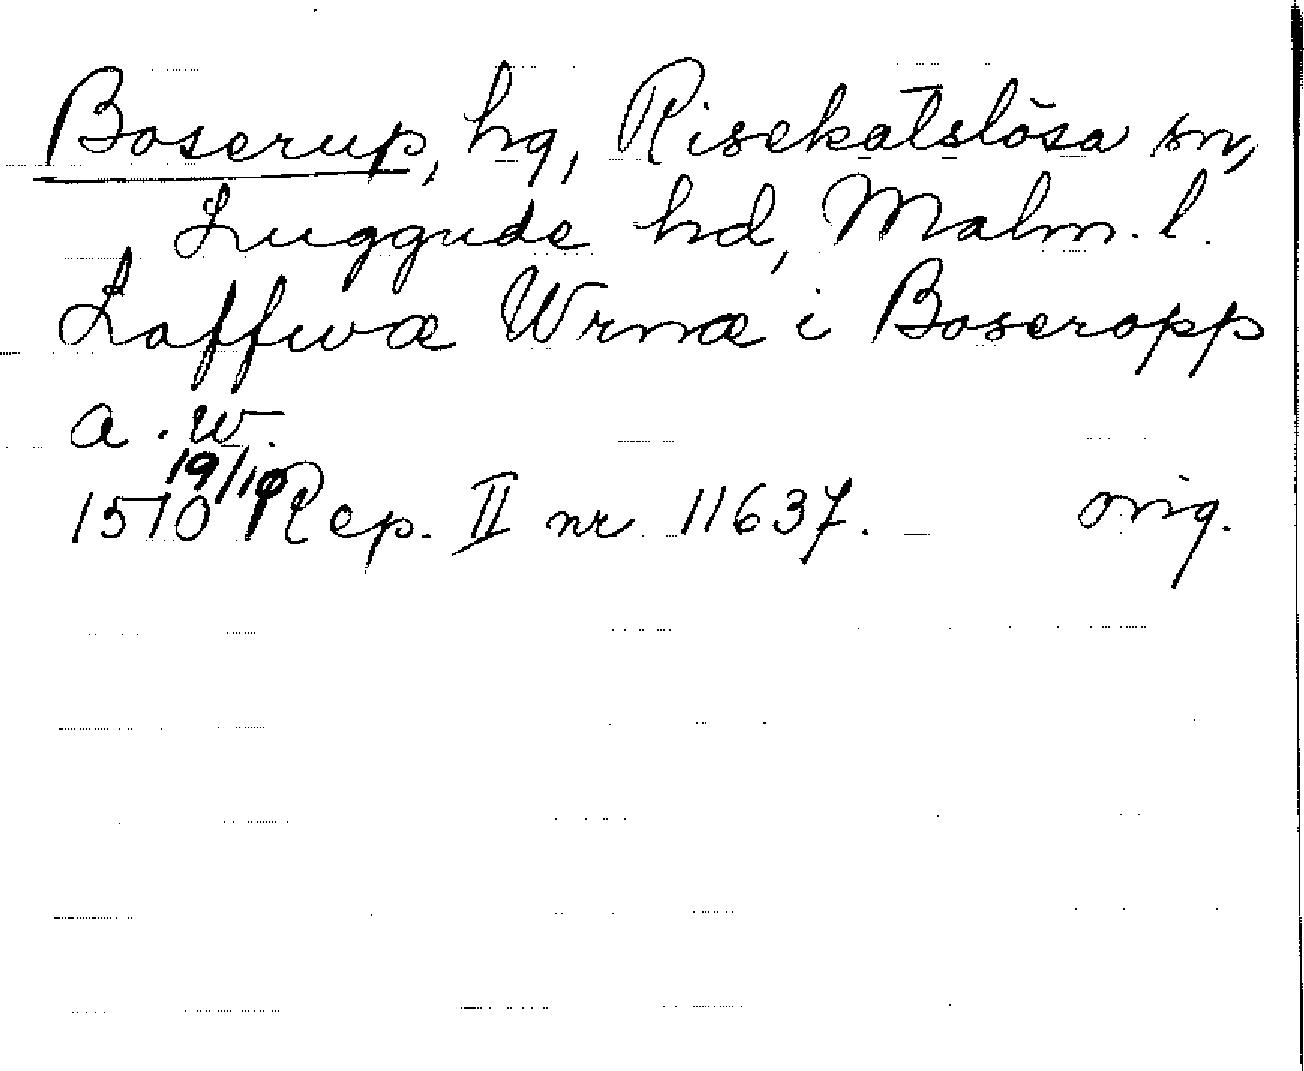 Boserup, hg, Risekatslösa sn,
Luggude hd, Malm. l.
Laffwæ Wrnæ i Boseropp
a. w.
1510 19/10 Rep. II nr 11637. orig.